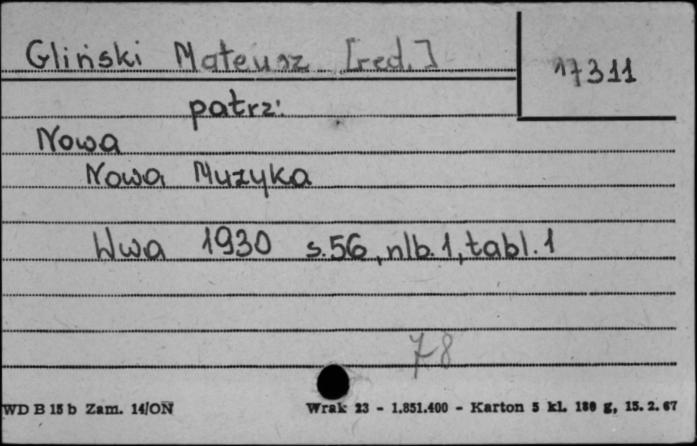 Gliński Mateusz [red.]
17311
patrz:
Nowa
Nowa Muzyka
Wwa 1930 s.56, nlb.1, tabl.1
78
WD B 15 b Zam. 14/ON
Wrak 23 - 1.851.400 - Karton 5 kl. 180 g, 15. 2. 67